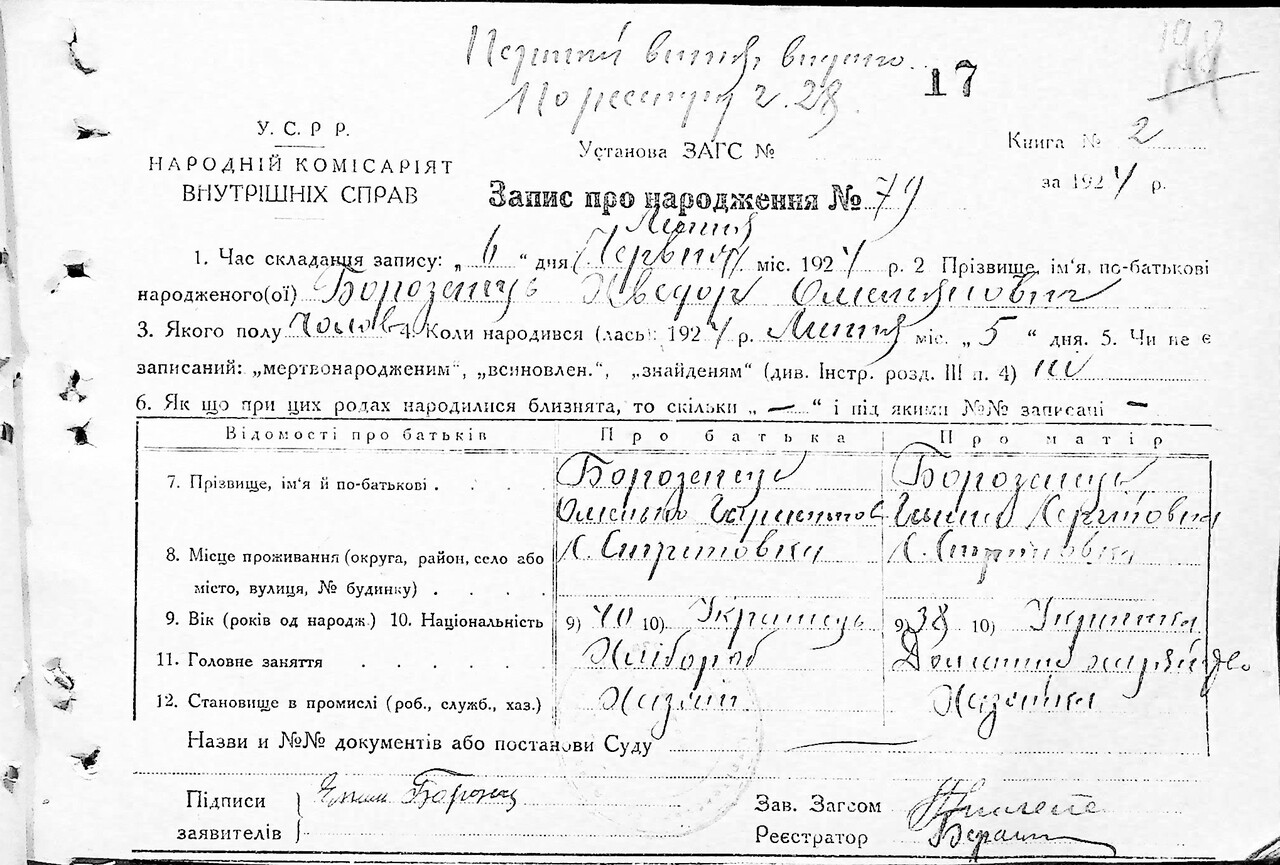 Перший витяг видано
По реєстру ч. 28
17
У. С. Р Р.
НАРОДНІЙ КОМІСАРІЯТ
ВНУТРІШНІХ СПРАВ
Установа ЗАГС №
Книга № 2
за 1924 р.
Запис про народження № 79
Липня
1. Час складання запису: „ 6 “ дня Червня міс. 1924 р. 2 Прізвище, ім'я, по-батькові
народженого(ої) Борозенець Хведор Омелянович
3. Якого полу Чолов 4. Коли народився (лась): 1924 р. Липня міс. „ 5 “ дня. 5. Чи не є
записаний: „мертвонародженим“, „всиновлен.“, „знайденям“ (див. Інстр. розд. III п. 4) ні
6. Як що при цих родах народилися близнята, то скільки „ — “ і під якими №№ записані —
Відомості про батьків Про батька Про матір
7. Прізвище, ім'я й по-батькові . . . . Борозенець Борозенець
Омелько
8. Місце проживання (округа, район, село або
місто, вулиця, № будинку) . . . .
9. Вік (років од народж.) 10. Національність 9) 40 10) Українець 9) 38 10) Українка
11. Головне заняття . . . . . . Хлібороб Домашнє
12. Становище в промислі (роб., служб., хаз.) Хазяїн Хазяйка
Назви и №№ документів або постанови Суду
Підписи
заявителів
Зав. Загсом
Реєстратор